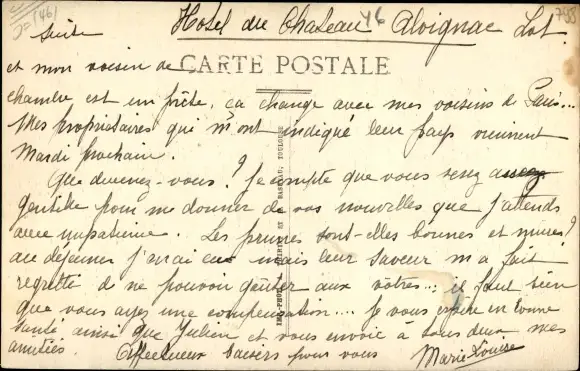 Suite Hotel du Chateau Aloignac Lot.
46
et mon voisin de CARTE POSTALE
chambre est un prêtre, ça change avec mes voisins de Paris...
Mes propriétaires qui m'ont indiqué leur pays viennent
Mardi prochain.
Que devenez-vous? Je compte que vous serez assez
gentille pour me donner de vos nouvelles que j'attends
avec impatience. Les prunes sont-elles bonnes et mures?
au déjeuner j'en ai eu mais leur saveur m'a fait
regretté de ne pouvoir goûter aux vôtres... il faut bien
que vous ayez une compensation.... Je vous espère en bonne
santé ainsi que Julien et vous envoie à tous deux mes
amitiés. Affectueux baisers pour vous Marie-Louise